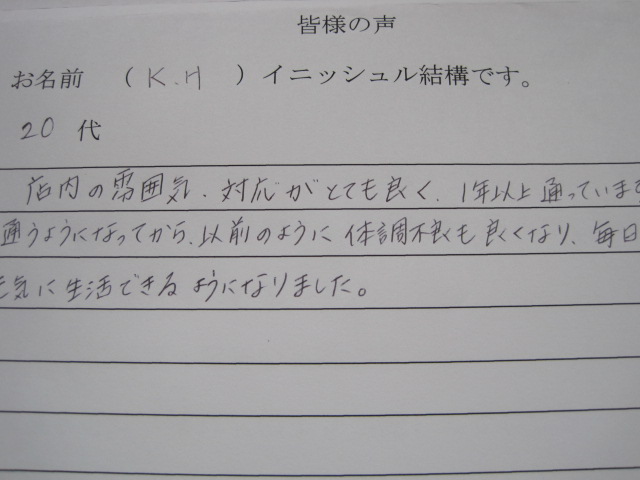 皆様の声
お名前 （ K.H ）イニッシュル結構です。
20 代
店内の雰囲気、対応がとても良く、1年以上通っています
通うようになってから、以前のように体調不良も良くなり、毎日
元気に生活できるようになりました。